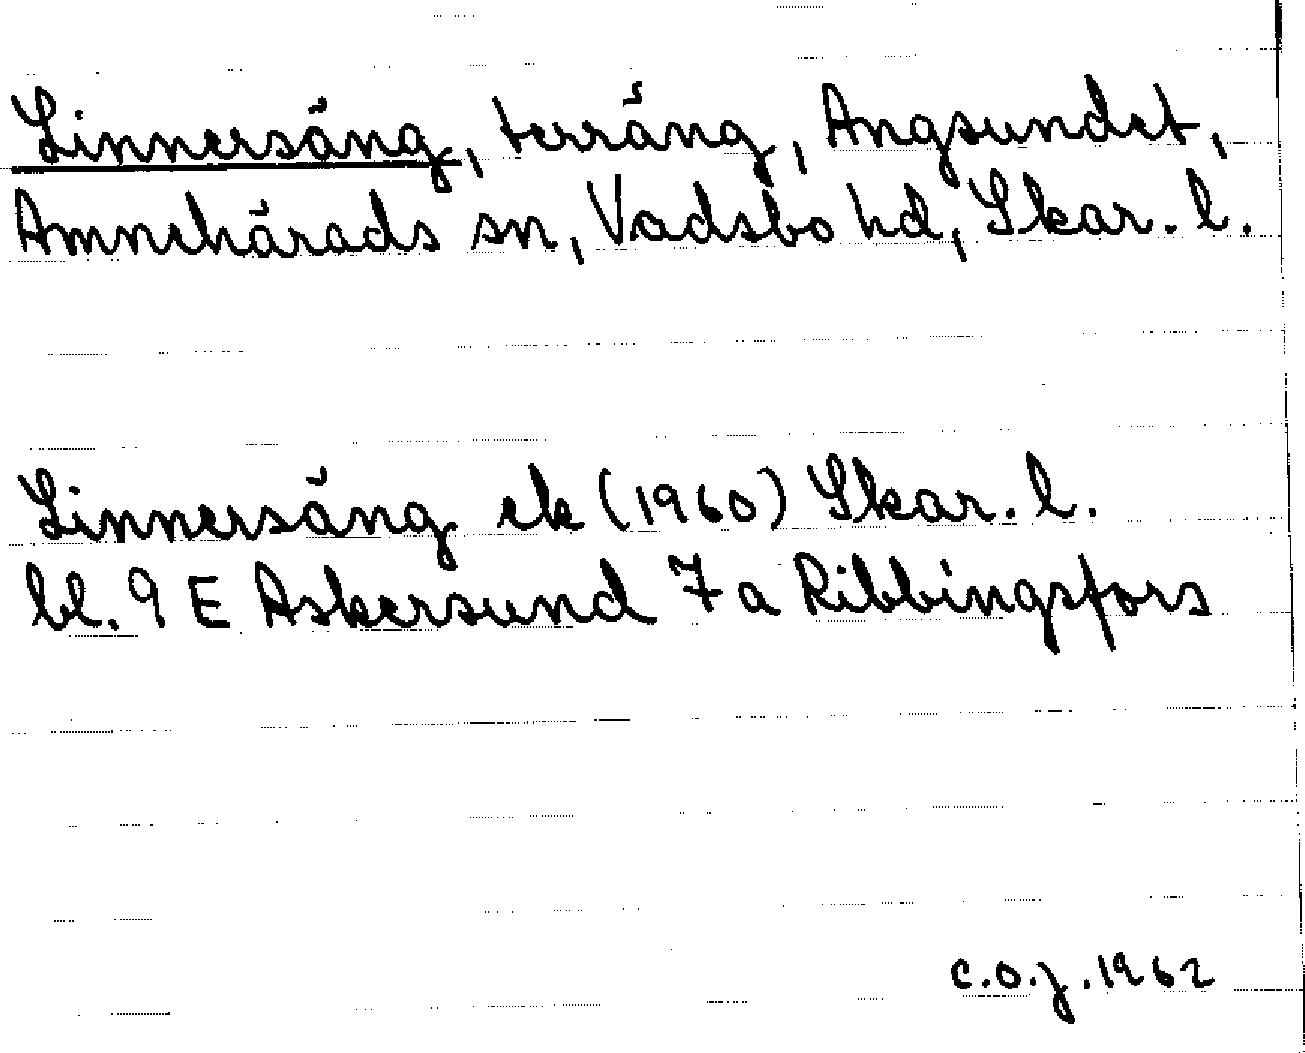 Linnersäng, terräng, Angsundet,
Amnehärads sn, Vadsbo hd, Skar. l.
Linnersäng ek (1960) Skar. l.
bl. 9 E Askersund 7 a Ribbingsfors
C.O.J. 1962